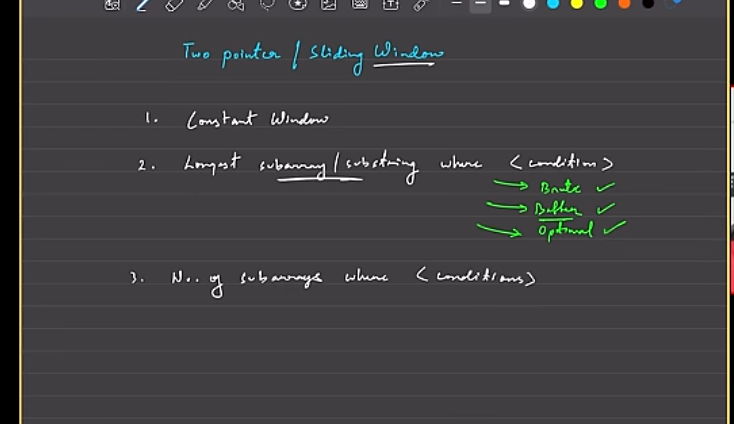 Two pointer / Sliding Window
1. Constant Window
2. Longest subarray / substring where <condition>
→ Brute ✓
→ Better ✓
→ Optimal ✓
3. No. of subarrays where <conditions>